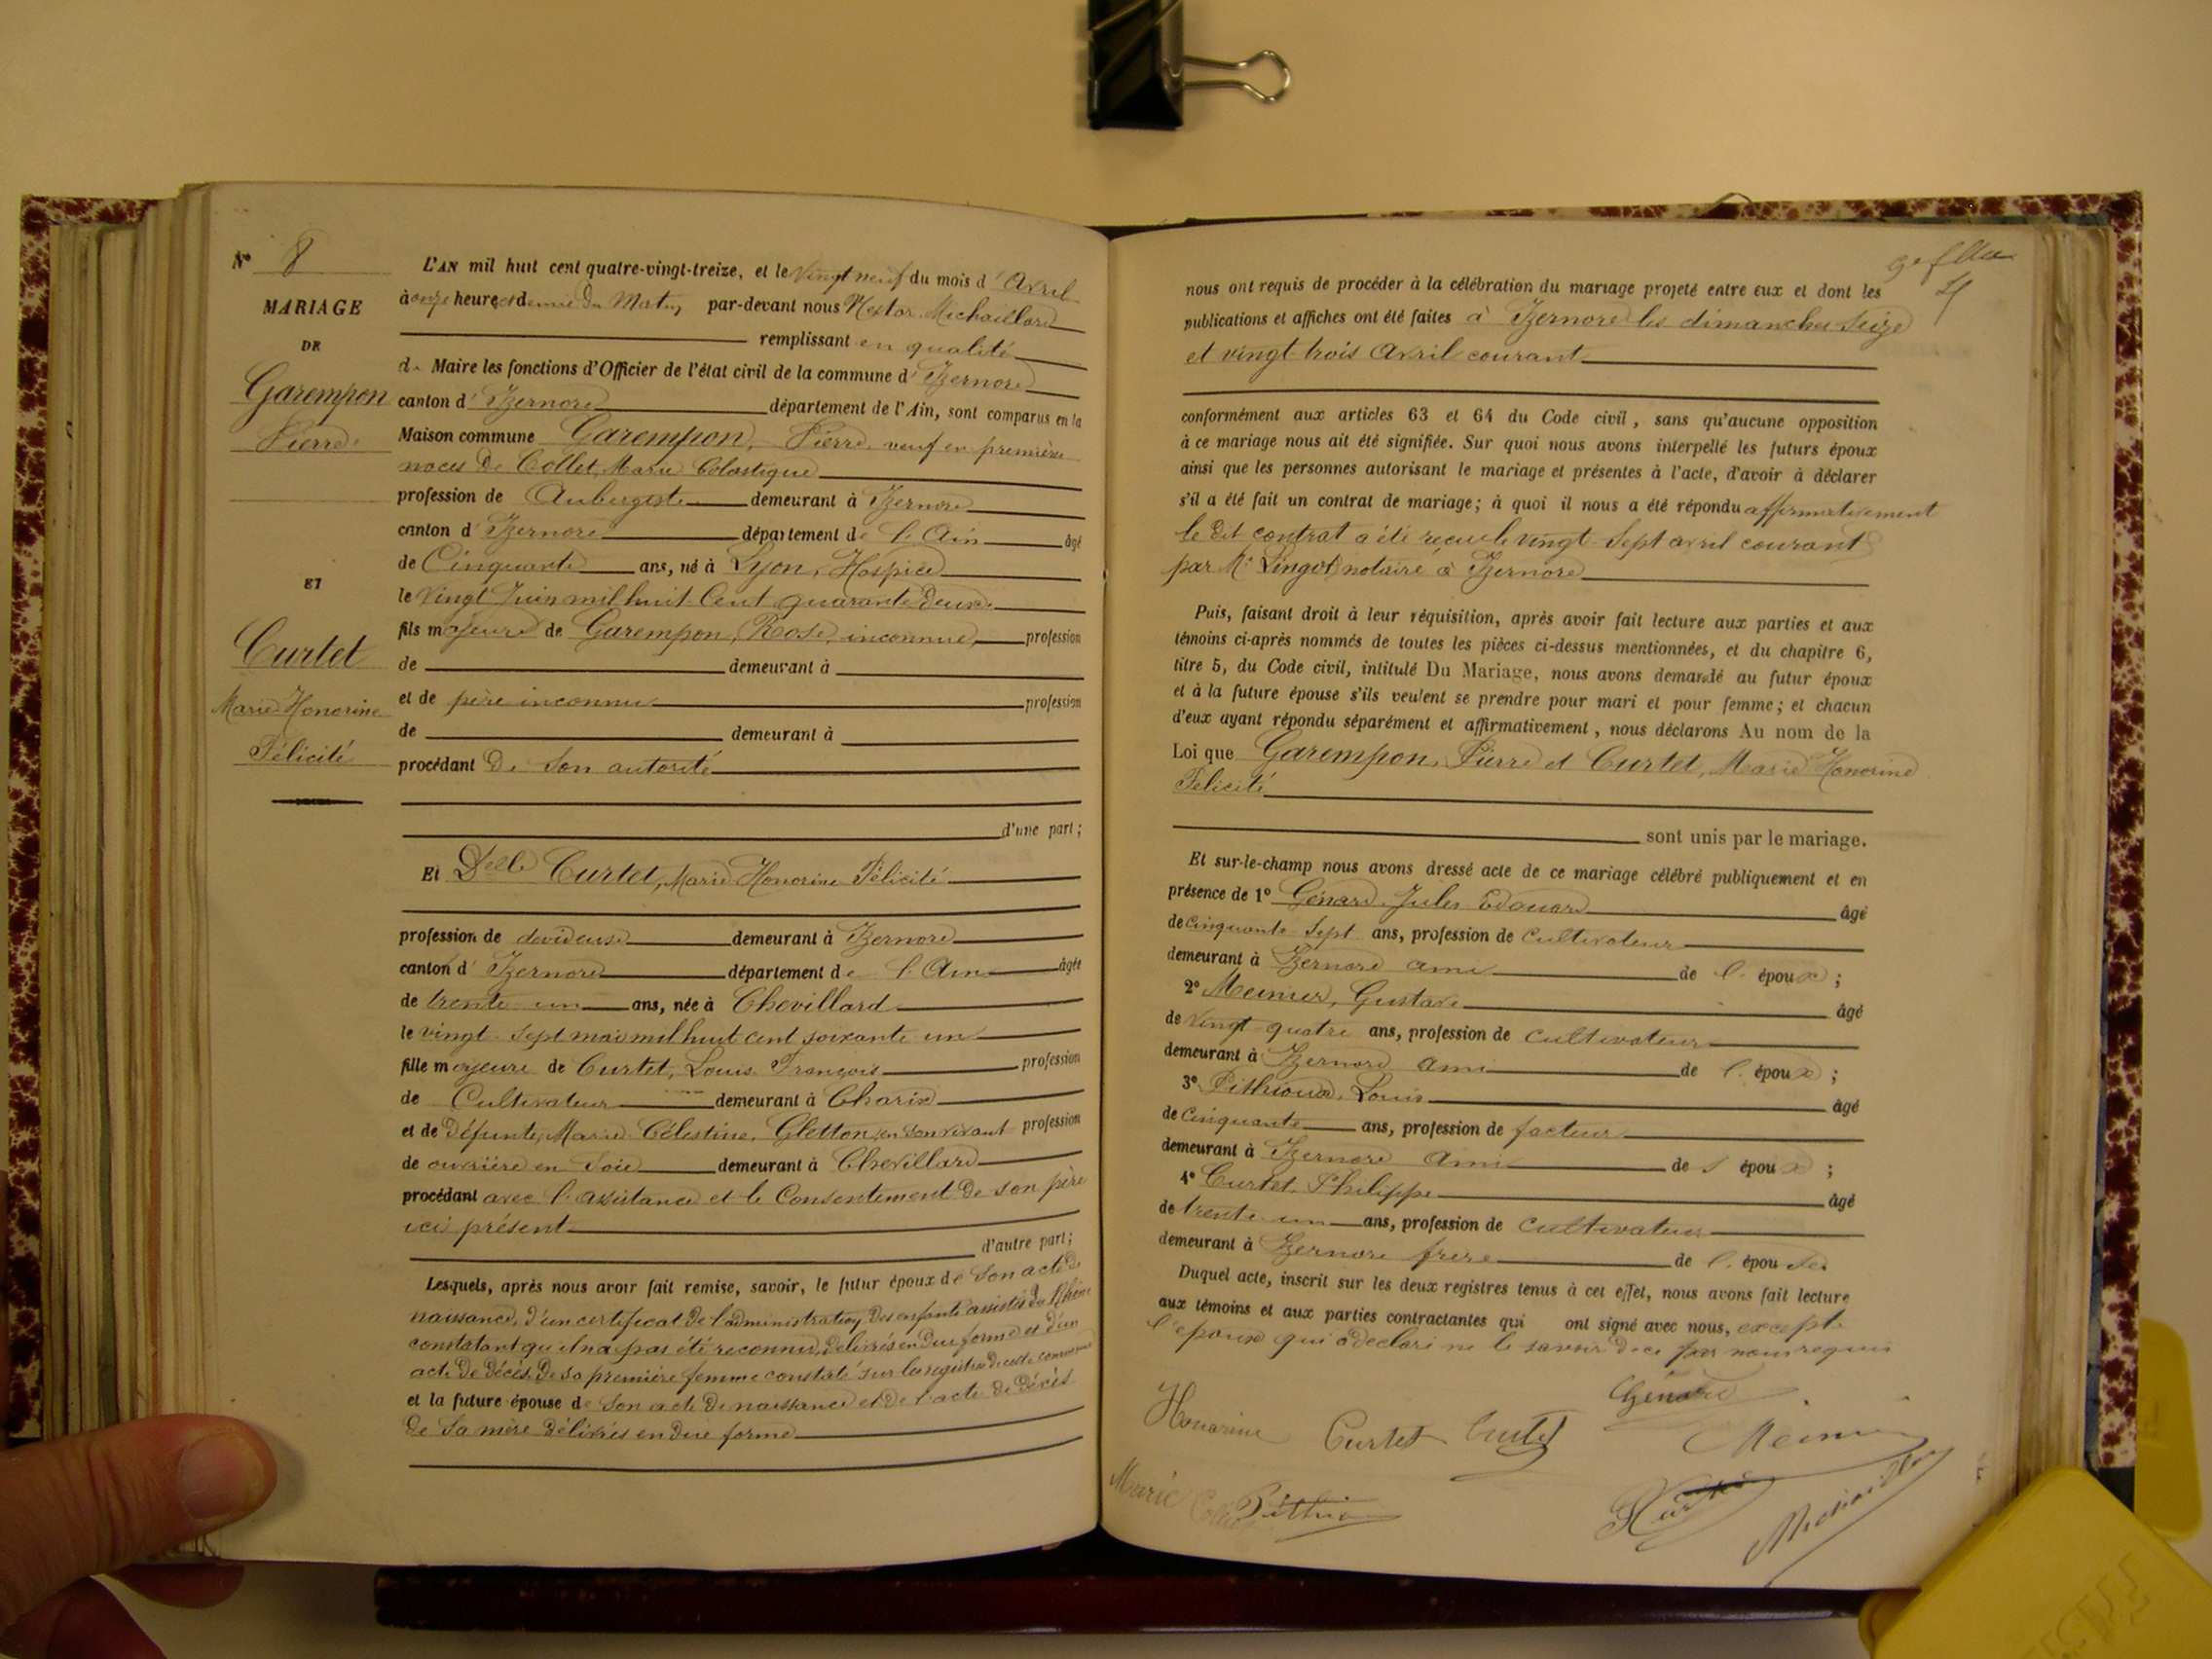 N° 8
MARIAGE
DE
Garempon
Pierre
ET
Curtet
Marie Honorine
Félicité
L'AN mil huit cent quatre-vingt-treize, et le vingt neuf du mois d'Avril
à onze heures et demie du Matin par-devant nous Nestor Michaillard
remplissant en qualité
de Maire les fonctions d'Officier de l'état civil de la commune d'Izernore
canton d'Izernore département de l'Ain, sont comparus en la
Maison commune Garempon, Pierre, veuf en première
noces de Collet, Marie Colastique
profession de Aubergiste demeurant à Izernore
canton d'Izernore département de l'Ain âgé
de Cinquante ans, né à Lyon, Hospice
le Vingt Juin mil huit Cent quarante deux
fils majeure de Garempon, Rose, inconnue, profession
de demeurant à
et de père inconnu profession
de demeurant à
procédant de son autorité
d'une part;
Et Delle Curtet, Marie Honorine Félicité
profession de devideuse demeurant à Izernore
canton d'Izernore département de l'Ain âgée
de trente un ans, née à Chevillard
le vingt sept mai mil huit cent soixante un
fille majeure de Curtet, Louis François profession
de Cultivateur demeurant à Charix
et de Défunte, Marie Célestine, Gletton, en son vivant profession
de ouvrière en Soie demeurant à Chevillard
procédant avec l'assistance et le Consentement de son père
ici présent
d'autre part;
Lesquels, après nous avoir fait remise, savoir, le futur époux de son acte de
naissance, d'un certificat de l'administration des enfants assistés du Rhône
constatant qu'il n'a pas été reconnu, délivrés en due forme et d'un
acte de décès de sa première femme constaté sur les registres de cette commune
et la future épouse de son acte de naissance et de l'acte de décès
de sa mère délivrés en due forme
nous ont requis de procéder à la célébration du mariage projeté entre eux et dont les
publications et affiches ont été faites à Izernore les dimanches seize
et vingt trois Avril courant
conformément aux articles 63 et 64 du Code civil, sans qu'aucune opposition
à ce mariage nous ait été signifiée. Sur quoi nous avons interpellé les futurs époux
ainsi que les personnes autorisant le mariage et présentes à l'acte, d'avoir à déclarer
s'il a été fait un contrat de mariage; à quoi il nous a été répondu affirmativement
le dit contrat a été reçu le vingt sept avril courant
par Me Lingot notaire à Izernore
Puis, faisant droit à leur réquisition, après avoir fait lecture aux parties et aux
témoins ci-après nommés de toutes les pièces ci-dessus mentionnées, et du chapitre 6,
titre 5, du Code civil, intitulé Du Mariage, nous avons demandé au futur époux
et à la future épouse s'ils veulent se prendre pour mari et pour femme; et chacun
d'eux ayant répondu séparément et affirmativement, nous déclarons Au nom de la
Loi que Garempon, Pierre et Curtet, Marie Honorine
Félicité
sont unis par le mariage.
Et sur-le-champ nous avons dressé acte de ce mariage célébré publiquement et en
présence de 1° Génard Jules Edouard âgé
de cinquante sept ans, profession de Cultivateur
demeurant à Izernore ami de l'époux;
2° Meunier, Gustave âgé
de vingt quatre ans, profession de cultivateur
demeurant à Izernore ami de l'époux;
3° Pithioud, Louis âgé
de Cinquante ans, profession de facteur
demeurant à Izernore ami de l'époux;
4° Curtet Philippe âgé
de trente un ans, profession de Cultivateur
demeurant à Izernore frère de l'épouse.
Duquel acte, inscrit sur les deux registres tenus à cet effet, nous avons fait lecture
aux témoins et aux parties contractantes qui ont signé avec nous, excepté
l'époux qui a déclaré ne le savoir de ce par nous requis
Honorine Curtet Curtet Génard
Meunier
Marie